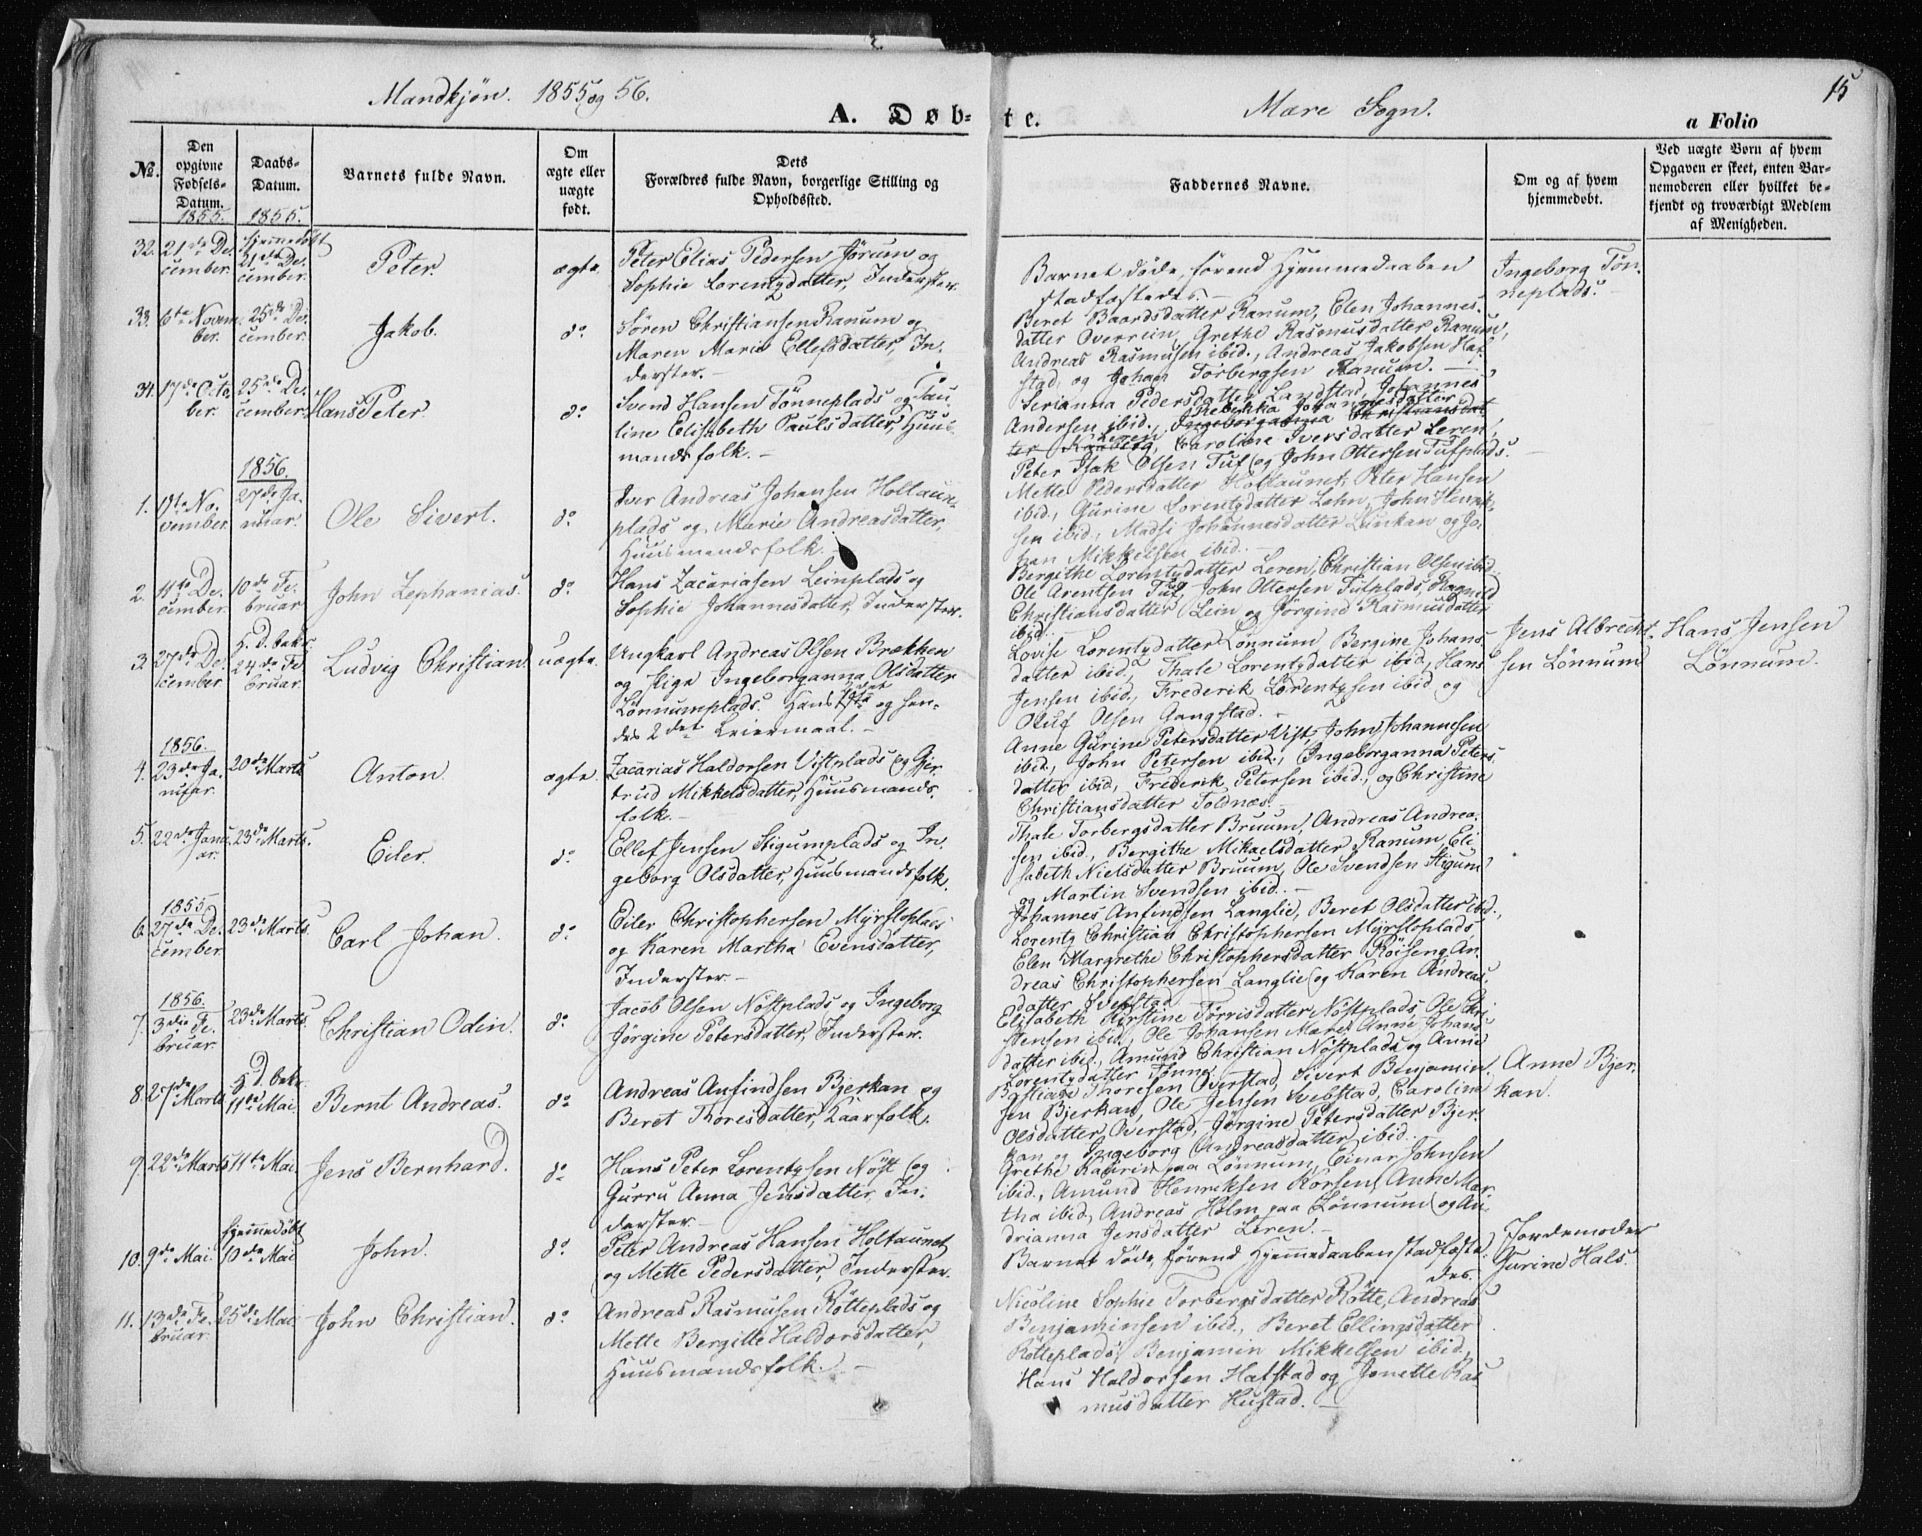 Mandkjøn. 1855 og 56.
Mære Sogn.
15
A. Døb-
te.
a Folio
No.
Den opgivne Fødsels-Datum.
Daabs-Datum.
Barnets fulde Navn.
Om ægte eller uægte født.
Dets Forældres fulde Navn, borgerlige Stilling og Opholdssted.
Faddernes Navne.
Om og af hvem hjemmedøbt.
Ved uægte Børn af hvem
Opgaven er skeet, enten Bar-
nemoderen eller hvilket be-
kjendt og troværdigt Medlem
af Menigheden.
1855. 1855.
32. 21de De-
cember.
Hjemmedøbt
21de De-
cember.
Peter.
ægte.
Peter Elias Pedersen Jørum og
Sophie Lorentzdatter, Inderster.
Barnet døde, førend Hjemmedaaben
stadfæstedes. –
Ingeborg Tøn-
neplads.
33. 6te Novem-
ber.
25de De-
cember.
Jakob.
do
Søren Christiansen Ranum og
Maren Maria Ellefsdatter, In-
derster. –
Beret Baardsdatter Ranum, Elen Johannes-
datter Overrein, Grethe Rasmusdatter Ranum,
Andreas Rasmusen ibid., Andreas Jakobsen Haf-
stad, og Johan Torbergsen Ranum. –
34. 17de Octo-
ber.
25de De-
cember.
Hans Peter.
do
Svend Hansen Tønneplads og Pau-
line Elisabeth Paulsdatter, Huus-
mandsfolk. –
Serianna Pedersdatter Landstad, Johannes
Andersen ibid., Rebekka Johannesdatter
Ingeborganna Christiansdat-
ter Leren, Caroline Iversdatter Leren,
Peter Isak Olsen Tuf og John Ottersen Tufplads.
1856.
1. 19de No-
vember.
27de Ja-
nuar.
Ole Sivert.
do
Iver Andreas Johansen Holtaun-
plads og Marie Andreasdatter,
Huusmandsfolk. –
Mette Pedersdatter Holtaunet, Peter Hansen
ibid., Gurine Lorentzdatter Lehn, John Henrik-
sen ibid., Madsi Johannesdatter Lunkan og Jo-
han Mikkelsen ibid. –
2. 11te De-
cember.
10de Fe-
bruar
John Zephanias.
do
Hans Zacariasen Leinplads og
Sophie Johannesdatter, Inderster.
Bergithe Lorentzdatter Leren, Christian Olsen ibid.,
Ole Arentsen Tuf, John Ottersen Tufplads, Ragnild
Christiansdatter Lein og Jørgind Rasmusdatter
ibid.
3. 27de De-
cember
H. D. bekr.
24de Fe-
bruar
Ludvig Christian
uægte.
Ungkarl Andreas Olsen Brækken
og Pige Ingeborganna Olsdatter
Lønnumplads. Hans 1ste og hen-
des 2det Leiermaal. –
Lovise Lorentzdatter Lønnum, Bergine Johans-
datter ibid., Thale Lorentzdatter ibid, Hans
Jensen ibid., Frederik Lorentzsen ibid og
Oluf Olsen Gangstad. –
Jens Albrecht-
sen Lønnum
Hans Jensen
Lønnum.
1856.
4. 23de Ja-
nuar.
20de Marts
Anton.
ægte.
Zacarias Haldorsen Vistplads og Gjer-
trud Mikkelsdatter, Huusmands-
folk. –
Anne Gurine Petersdatter Vist, John Johannesen
ibid., John Petersen ibid., Ingeborganna Peters-
datter ibid, Frederik Petersen ibid., og Christine
Christiansdatter Foldnæs. –
5. 22de Janu-
ar.
23de Marts.
Eiler.
do
Ellef Jensen Stigumplads og In-
geborg Olsdatter, Huusmandsfolk.
Thale Torbergsdatter Bruum, Andreas Andrea-
sen ibid., Bergithe Mikaelsdatter Ranum, Eli-
sabeth Nielsdatter Bruum, Ole Svendsen Stigum
og Martin Svendsen ibid. –
1855.
6. 27de De-
cember.
23de Marts.
Carl Johan.
do
Eiler Christophersen Myrstoplads
og Karen Martha Evensdatter,
Inderster –
Johannes Anfindsen Langlie, Beret Olsdatter ibid.,
Lorentz Christian Christophersen Myrstoplads,
Elen Margrethe Christophersdatter Røiseng, An-
dreas Christophersen Langlie og Karen Andreas-
datter Svebstad
1856.
7. 3die Fe-
bruar.
23de Marts.
Christian Odin.
do
Jacob Olsen Nøstplads og Ingeborg
Jørgine Petersdatter, Inderster.
Elisabeth Kirstine Torrisdatter Nøstplads, Ole Chri-
stensen ibid., Ole Johansen Mære, Anne Johans-
datter ibid., Amund Christian Nøstplads og Anne
Lorentzdatter Tønne.
8. 27de
Marts
H. D. bekr.
11te Mai.
Bernt Andreas.
do
Andreas Anfindsen Bjerkan og
Beret Thoresdatter, Kaarfolk.
Bastian Thoresen Overstad, Sivert Benjamin-
sen Bjerkan, Ole Jensen Svebstad, Caroline
Olsdatter Overstad, Jørgine Petersdatter Bjer-
kan og Ingeborg Andreasdatter ibid.
Anne Bjer-
kan.
9. 22de Marts
11te Mai.
Jens Bernhard.
do
Hans Peter Lorentzsen Nøst og
Gurru Anna Jensdatter, In-
derster. –
Grethe Kathrin paa Lønnum, Einar Johnsen
ibid., Amund Henriksen Korsen, Anne Mar-
tha ibid, Andreas Holm paa Lønnum og An-
drianna Jensdatter Leren. –
10. 9de Mai.
Hjemmedøbt
10de Mai
John.
do
Peter Andreas Hansen Holtaunet
og Mette Pedersdatter, Inderster.
Barnet døde, førend Hjemmedaaben stadfæste-
des.
Jordemoder
Gurine Hals.
11. 13de Fe-
bruar.
25de Mai
John Christian.
do
Andreas Rasmusen Røtteplads og
Mette Bergitte Haldorsdatter,
Huusmandsfolk. –
Nicoline Sophie Torbergsdatter Røtte, Andreas
Benjaminsen ibid., Beret Ellingsdatter
Røtteplads, Benjamin Mikkelsen ibid.,
Hans Haldorsen Hafstad og Jonette Ras-
musdatter Hustad. –